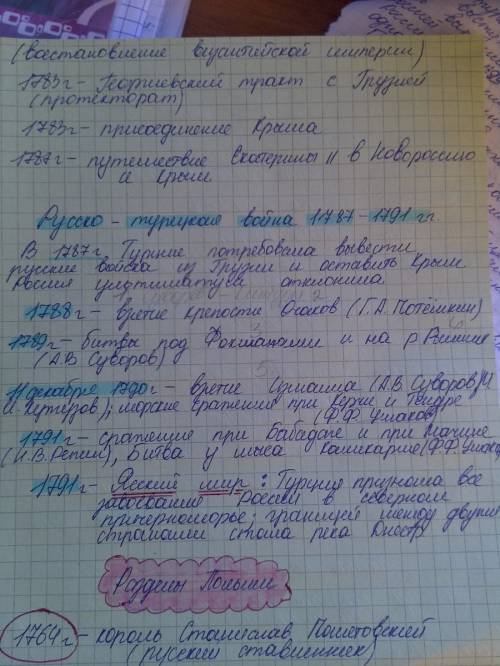 (восстановление византийской империи)
1783г - Георгиевский тракт с Грузией
(протекторат)
1783г - присоединение Крыма
1787г - путешествие Екатерины II в Новороссию
и Крым
Русско - турецкая война 1787 - 1791 гг.
В 1787г Турция потребовала вывести
русские войска из Грузии и оставить Крым
Россия ультиматум отклонила
1788г - взятие крепости Очаков (Г.А. Потёмкин)
1789г - битва под Фокшанами и на р. Рымник
(А.В. Суворов)
11 декабря 1790г - взятие Измаила (А.В. Суворов, М.
И. Кутузов); морские сражения при Керчи и Тендре
(Ф.Ф. Ушаков)
1791г - сражение при Бабадаге и при Мачине
(Н.В. Репнин), битва у мыса Калиакрия (Ф.Ф. Ушаков)
1791г - Ясский мир: Турция признала все
завоевания России в северном
причерноморье; границей между двумя
странами стала река Днестр
Разделы Польши
1764г - король Станислав Понятовский
(русский ставленник)